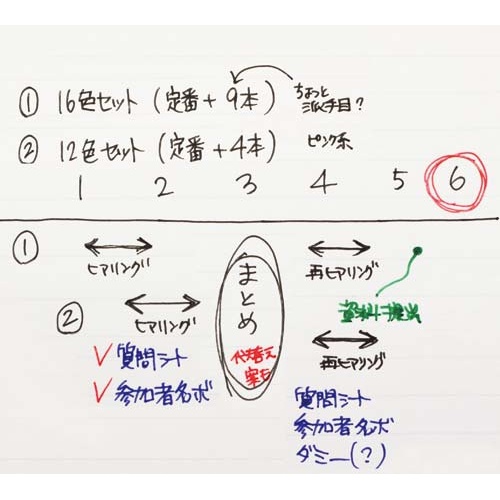 ① 16色セット (定番+9本) ちょっと
派手目?
② 12色セット (定番+4本) ピンク系
1 2 3 4 5 6
①
ヒアリング
②
ヒアリング
✓質問シート
✓参加者名ボ
まとめ
代替え
案も
再ヒアリング
資料提出
再ヒアリング
質問シート
参加者名ボ
ダミー(?)